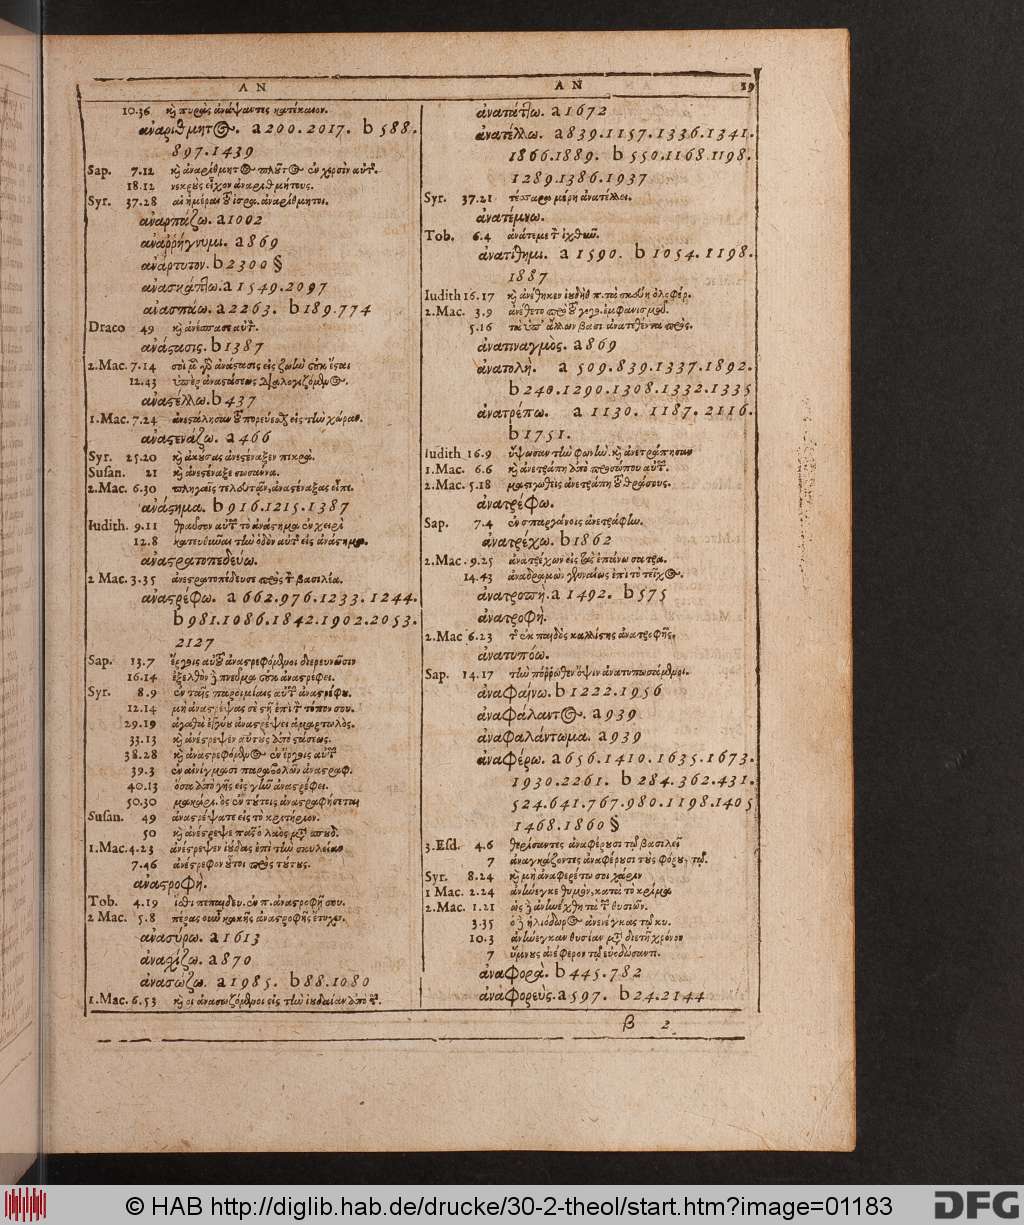 ΑΝ
10.36 κỳ πυρὰς ἀνάψαντες κατέκαιον.
ἀναρίθμητος. a 200.2017. b 588.
897.1439
Sap. 7.12 καὶ ἀναρίθμητος πλοῦτος ἐν χερσὶν αὐτ.
18.12 νεκροὺς εἶχον ἀναριθμήτους.
Syr. 37.28 αἱ ἡμέραι τοῦ ἰσρα. ἀναρίθμητοι.
ἀναρπάζω. a 1002
ἀναῤῥήγνυμι. a 869
ἀνάρτυτον. b 2300 §
ἀνασκάπτω. a 1549.2097
ἀνασπάω. a 2263. b 189.774
Draco 49 καὶ ἀνέσπασε αὐτ.
ἀνάστασις. b 1387
2.Mac. 7.14 σοὶ μὲν γὰρ ἀνάστασις εἰς ζωὴν οὐκ ἔσται
12.43 ὑπὲρ ἀναστάσεως διαλογιζόμενος.
ἀναστέλλω. b 437
1.Mac. 7.24 ἀνεστάλησαν τοῦ πορεύεσθαι εἰς τὴν χώραν.
ἀναστενάζω. a 466
Syr. 25.20 καὶ ἀκούσας ἀνεστέναξεν πικρά.
Susan. 21 καὶ ἀνεστέναξε σωσάννα.
2.Mac. 6.30 πληγαῖς τελευτᾶν, ἀναστενάξας εἶπε.
ἀνάστημα. b 916.1215.1387
Iudith. 9.11 θραῦσον αὐτ τὸ ἀνάστημα ἐν χειρὶ
12.8 κατευθῦναι τὴν ὁδὸν αὐτ εἰς ἀνάστημα.
ἀναστρατοπεδεύω.
2 Mac. 3.35 ἀνεστρατοπέδευσε πρὸς τὸν βασιλέα.
ἀναστρέφω. a 662.976.1233.1244.
b 981.1086.1842.1902.2053.
2127
Sap. 13.7 ἔργοις αὐτοῦ ἀναστρεφόμενοι διερευνῶσιν
16.14 ἐξελθὸν δὲ πνεῦμα οὐκ ἀναστρέφει.
Syr. 8.9 ἐν ταῖς παροιμίαις αὐτ ἀναστρέφου.
12.14 μὴ ἀναστρέψας σὲ στῇ ἐπὶ τὸν τόπον σου.
29.19 ἀγαθὰ ἐγγύου ἀναστρέψει ἁμαρτωλὸς.
33.13 καὶ ἀνέστρεψεν αὐτοὺς ἀπὸ στάσεως.
38.28 καὶ ἀναστρεφόμενος ἐν ἔργοις αὐτ
39.3 ἐν αἰνίγμασι παραβολῶν ἀναστραφ.
40.13 ὅσα ἀπὸ γῆς εἰς γῆν ἀναστρέφει.
50.30 μακάρι. ὃς ἐν τούτοις ἀναστραφήσεται
Susan. 49 ἀναστρέψατε εἰς τὸ κριτήριον.
50 καὶ ἀνέστρεψε πᾶς ὁ λαὸς μετὰ σπουδ.
1.Mac. 4.23 ἀνέστρεψεν ἰούδας ἐπὶ τὴν σκυλείαν
7.46 ἀνέστρεφον οὗτοι πρὸς τούτους.
ἀναστροφὴ.
Tob. 4.19 ἴσθι πεπαιδευ. ἐν π. ἀναστροφῇ σου.
2 Mac. 5.8 πέρας οὖν κακῆς ἀναστροφῆς ἔτυχεν.
ἀνασύρω. a 1613
ἀνασχίζω. a 870
ἀνασώζω. a 1985. b 88.1080
1.Mac. 6.53 καὶ οἱ ἀνασωζόμενοι εἰς τὴν ἰουδαίαν ἀπὸ τ.
ΑΝ 19
ἀνατάττω. a 1672
ἀνατέλλω. a 839.1157.1336.1341.
1866.1889. b 550.1168.1198.
1289.1386.1937
Syr. 37.21 τέσσαρα μέρη ἀνατέλλει.
ἀνατέμνω.
Tob. 6.4 ἀνάτεμε τὸν ἰχθῦν.
ἀνατίθημι. a 1590. b 1054.1198.
1887
Iudith 16.17 καὶ ἀνέθηκεν ἰουδὴθ π. τὰ σκεύη ὀλοφέρ.
2.Mac. 3.9 ἀνέθετο περὶ τοῦ γεγο. ἐμφανισμοῦ.
5.16 τὰ ὑπ' ἄλλων βασι ἀνατεθέντα πρὸς.
ἀνατιναγμὸς. a 869
ἀνατολὴ. a 509.839.1337.1892.
b 240.1290.1308.1332.1335
ἀνατρέπω. a 1130. 1187. 2116.
b 1751.
Iudith 16.9 ὕψωσαν τὴν φωνὴν. καὶ ἀνετράπησαν
1.Mac. 6.6 καὶ ἀνετράπη ἀπὸ προσώπου αὐτ.
2.Mac. 5.18 μαστιγωθεὶς ἀνετράπη τοῦ θράσους.
ἀνατρέφω.
Sap. 7.4 ἐν σπαργάνοις ἀνετράφην.
ἀνατρέχω. b 1862
2.Mac. 9.25 ἀνατρέχων εἰς τὰς ἐπάνω σατρα.
14.43 ἀναδραμὼν γενναίως ἐπὶ τὸ τεῖχος.
ἀνατροπὴ. a 1492. b 575
ἀνατροφὴ.
2.Mac 6.23 τ ἐκ παιδὸς καλλίστης ἀνατροφῆς.
ἀνατυπόω.
Sap. 14.17 τὴν πόῤῥωθεν ὄψιν ἀνατυπωσάμενοι.
ἀναφαίνω. b 1222.1956
ἀναφάλαντος. a 939
ἀναφαλάντωμα. a 939
ἀναφέρω. a 656.1410.1635.1673.
1930.2261. b 284.362.431.
524.641.767.980.1198.1405
1468.1860 §
3.Esd. 4.6 θερίσαντες ἀναφέρουσι τῷ βασιλεῖ
7 ἀναγκάζοντες ἀναφέρουσι τοὺς φόρους τῷ.
Syr. 8.24 καὶ μὴ ἀναφερέτω σοι χάριν
1 Mac. 2.24 ἀνήνεγκε θυμὸν, κατὰ τὸ κρίμα
2.Mac. 1.21 ὡς δὲ ἀνηνέχθη τὰ τῶν θυσιῶν.
3.35 ὁ δὲ ἡλιόδωρος ἀνενέγκας τῷ κυ.
10.3 ἀνήνεγκαν θυσίαν μετὰ διετῆ χρόνον
7 ὕμνους ἀνέφερον τῷ εὐοδώσαντι.
ἀναφορὰ. b 445.782
ἀναφορεὺς. a 597. b 24.2144
β 2
© HAB http://diglib.hab.de/drucke/30-2-theol/start.htm?image=01183
DFG